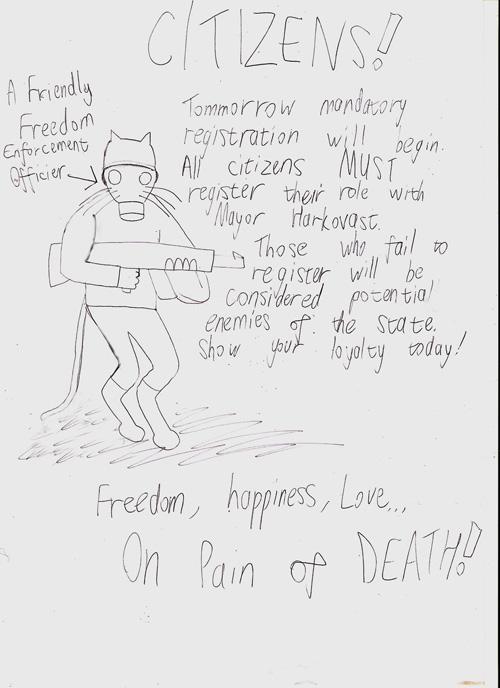 CITIZENS!
A Friendly
Freedom
Enforcement
Officier
Tommorrow mandatory
registration will begin.
All citizens MUST
register their role with
Mayor Harkovast.
Those who fail to
register will be
considered potential
enemies of the state.
Show your loyalty today!
Freedom, happiness, Love...
On Pain of DEATH!